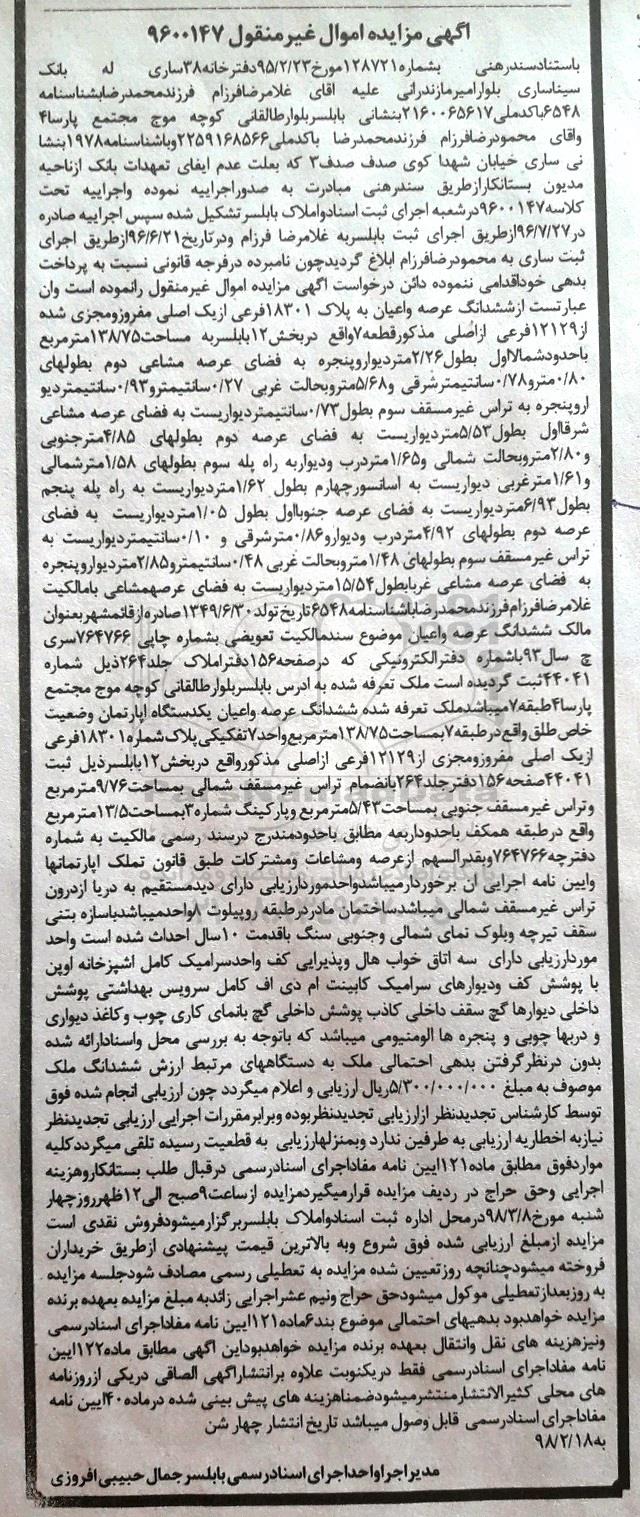 آگهی مزایده اموال غیرمنقول ۹۶۰۰۱۴۷
باستنادسندرهنی بشماره۱۲۸۷۲۱مورخ۹۵/۲/۲۳دفترخانه۳۸ساری له بانک
سیناساری بلوارامیرمازندرانی علیه اقای غلامرضافرزام فرزندمحمدرضابشناسنامه
۶۵۴۸باکدملی۲۱۶۰۰۶۵۶۱۷بنشانی بابلسربلوارطالقانی کوچه موج مجتمع پارسا۴
واقای محمودرضافرزام فرزندمحمدرضا باکدملی۲۲۵۹۱۶۸۵۶۶وباشناسنامه۱۹۷۸بنشا
نی ساری خیابان شهدا کوی صدف صدف۳ که بعلت عدم ایفای تعهدات بانک ازناحیه
مدیون بستانکارازطریق سندرهنی مبادرت به صدوراجراییه نموده واجراییه تحت
کلاسه۹۶۰۰۱۴۷درشعبه اجرای ثبت اسنادواملاک بابلسرتشکیل شده سپس اجراییه صادره
در۹۶/۷/۲۷ازطریق اجرای ثبت بابلسربه غلامرضا فرزام ودرتاریخ۹۶/۶/۲۱ازطریق اجرای
ثبت ساری به محمودرضافرزام ابلاغ گردیدچون نامبرده درفرجه قانونی نسبت به پرداخت
بدهی خوداقدامی ننموده دائن درخواست اگهی مزایده اموال غیرمنقول رانموده است وان
عبارتست ازششدانگ عرصه واعیان به پلاک ۱۸۳۰۱فرعی ازیک اصلی مفروزومجزی شده
از۱۲۱۲۹فرعی ازاصلی مذکورقطعه۷واقع دربخش۱۲بابلسربه مساحت۱۳۸/۷۵مترمربع
باحدودشمالااول بطول۲/۲۶متردیواروپنجره به فضای عرصه مشاعی دوم بطولهای
۰/۸۰مترو۰/۷۸سانتیمترشرقی و۵/۶۸متروبحالت غربی ۰/۲۷سانتیمترو۰/۹۳سانتیمتردیو
اروپنجره به تراس غیرمسقف سوم بطول۰/۷۳سانتیمتردیواریست به فضای عرصه مشاعی
شرقااول بطول۵/۵۳متردیواریست به فضای عرصه دوم بطولهای ۴/۸۵مترجنوبی
و۲/۸۰متروبحالت شمالی و۱/۶۵متردرب ودیواربه راه پله سوم بطولهای ۱/۵۸مترشمالی
و۱/۶۱مترغربی دیواریست به اسانسورچهارم بطول ۱/۶۲متردیواریست به راه پله پنجم
بطول۶/۹۳متردیواریست به فضای عرصه جنوبااول بطول ۱/۰۵متردیواریست به فضای
عرصه دوم بطولهای ۴/۹۲متردرب ودیوارو۰/۸۶مترشرقی و ۰/۱۰سانتیمتردیواریست به
تراس غیرمسقف سوم بطولهای ۱/۴۸متروبحالت غربی ۰/۴۸سانتیمترو۲/۸۵متردیواروپنجره
به فضای عرصه مشاعی غربابطول۱۵/۵۴متردیواریست به فضای عرصهمشاعی بامالکیت
غلامرضافرزام فرزندمحمدرضاباشناسنامه۶۵۴۸تاریخ تولد۱۳۴۹/۶/۳۰صادره ازقائمشهربعنوان
مالک ششدانگ عرصه واعیان موضوع سندمالکیت تعویضی بشماره چاپی ۷۶۴۷۶۶سری
چ سال۹۳باشماره دفترالکترونیکی که درصفحه۱۵۶دفتراملاک جلد۲۶۴ذیل شماره
۴۴۰۴۱ثبت گردیده است ملک تعرفه شده به ادرس بابلسربلوارطالقانی کوچه موج مجتمع
پارسا۴طبقه۷میباشدملک تعرفه شده ششدانگ عرصه واعیان یکدستگاه اپارتمان وضعیت
خاص طلق واقع درطبقه۷بمساحت۱۳۸/۷۵مترمربع واحد۷تفکیکی پلاک شماره۱۸۳۰۱فرعی
ازیک اصلی مفروزومجزی از۱۲۱۲۹فرعی ازاصلی مذکورواقع دربخش۱۲بابلسرذیل ثبت
۴۴۰۴۱صفحه۱۵۶دفترجلد۲۶۴بانضمام تراس غیرمسقف شمالی بمساحت۹/۷۶مترمربع
وتراس غیرمسقف جنوبی بمساحت۵/۴۳مترمربع وپارکینگ شماره۳بمساحت۱۳/۵مترمربع
واقع درطبقه همکف باحدوداربعه مطابق باحدودمندرج درسند رسمی مالکیت به شماره
دفترچه۷۶۴۷۶۶وبقدرالسهم ازعرصه ومشاعات ومشترکات طبق قانون تملک اپارتمانها
وایین نامه اجرایی ان برخوردارمیباشدواحدموردارزیابی دارای دیدمستقیم به دریا ازدرون
تراس غیرمسقف شمالی میباشدساختمان مادردرطبقه روپیلوت ۸واحدمیباشدباسازه بتنی
سقف تیرچه وبلوک نمای شمالی وجنوبی سنگ باقدمت ۱۰سال احداث شده است واحد
موردارزیابی دارای سه اتاق خواب هال وپذیرایی کف واحدسرامیک کامل اشپزخانه اوپن
با پوشش کف ودیوارهای سرامیک کابینت ام دی اف کامل سرویس بهداشتی پوشش
داخلی دیوارها گچ سقف داخلی کاذب پوشش داخلی گچ بانمای کاری چوب وکاغذ دیواری
و دربها چوبی و پنجره ها الومنیومی میباشد که باتوجه به بررسی محل واسنادارائه شده
بدون درنظرگرفتن بدهی احتمالی ملک به دستگاههای مرتبط ارزش ششدانگ ملک
موصوف به مبلغ ۵/۳۰۰/۰۰۰/۰۰۰ریال ارزیابی و اعلام میگردد چون ارزیابی انجام شده فوق
توسط کارشناس تجدیدنظر ازارزیابی تجدیدنظربوده وبرابرمقررات اجرایی ارزیابی تجدیدنظر
نیازبه اخطاریه ارزیابی به طرفین ندارد وبمنزلهارزیابی به قطعیت رسیده تلقی میگرددکلیه
مواردفوق مطابق ماده۱۲۱ایین نامه مفاداجرای اسنادرسمی درقبال طلب بستانکاروهزینه
اجرایی وحق حراج در ردیف مزایده قرارمیگیردمزایده ازساعت۹صبح الی۱۲ظهرروزچهار
شنبه مورخ۹۸/۳/۸درمحل اداره ثبت اسنادواملاک بابلسربرگزارمیشودفروش نقدی است
مزایده ازمبلغ ارزیابی شده فوق شروع وبه بالاترین قیمت پیشنهادی ازطریق خریداران
فروخته میشودچنانچه روزتعیین شده مزایده به تعطیلی رسمی مصادف شودجلسه مزایده
به روزبعدازتعطیلی موکول میشودحق حراج ونیم عشراجرایی زائدبه مبلغ مزایده بعهده برنده
مزایده خواهدبود بدهیهای احتمالی موضوع بند۶ماده۱۲۱ایین نامه مفاداجرای اسنادرسمی
ونیزهزینه های نقل وانتقال بعهده برنده مزایده خواهدبوداین اگهی مطابق ماده۱۲۲ایین
نامه مفاداجرای اسنادرسمی فقط دریکنوبت علاوه برانتشاراگهی الصاقی دریکی ازروزنامه
های محلی کثیرالانتشارمنتشرمیشودضمناهزینه های پیش بینی شده درماده۴۰ایین نامه
مفاداجرای اسنادرسمی قابل وصول میباشد تاریخ انتشار چهار شن
به۹۸/۲/۱۸
مدیراجراواحداجرای اسنادرسمی بابلسرجمال حبیبی افروزی